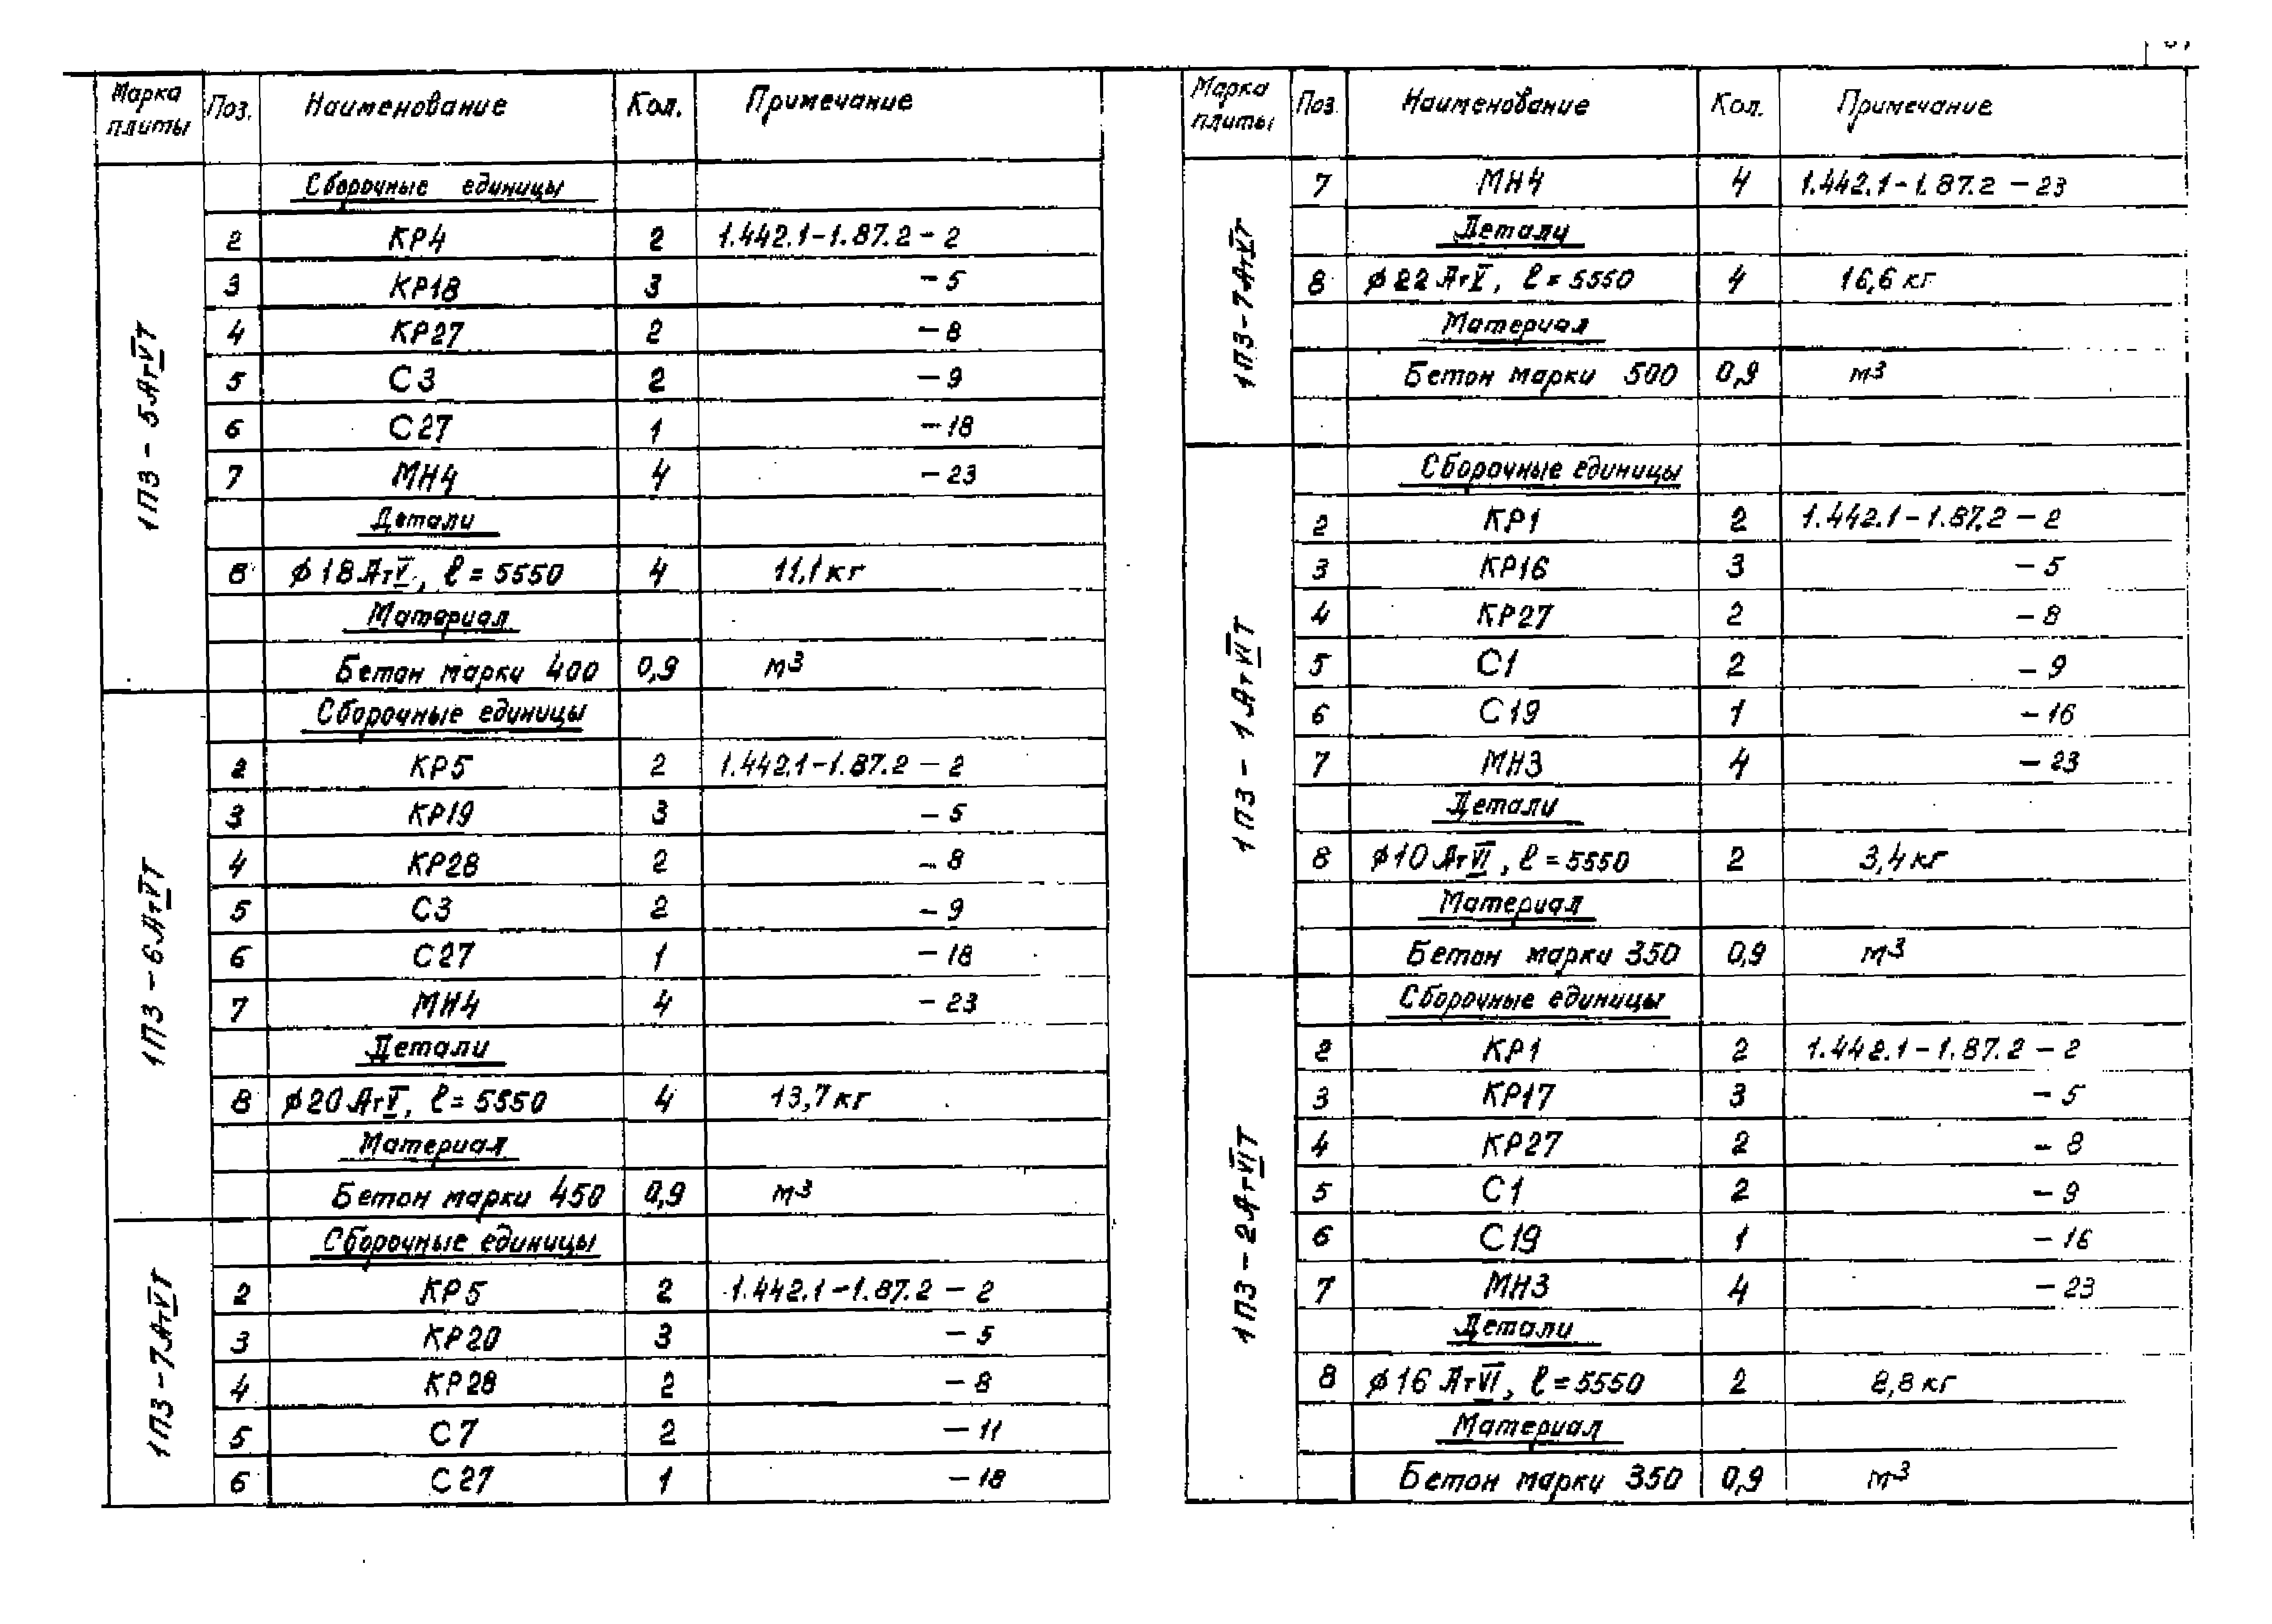 Марка плиты Поз. Наименование Кол. Примечание
1П3-5АтVТ
Сборочные единицы
2 КР4 2 1.442.1-1.87.2-2
3 КР18 3 -5
4 КР27 2 -8
5 С3 2 -9
6 С27 1 -18
7 МН4 4 -23
Детали
8 ϕ18АтV, ℓ=5550 4 11,1кг
Материал
Бетон марки 400 0,9 м3
1П3-6АтVТ
Сборочные единицы
2 КР5 2 1.442.1-1.87.2-2
3 КР19 3 -5
4 КР28 2 -8
5 С3 2 -9
6 С27 1 -18
7 МН4 4 -23
Детали
8 ϕ20АтV, ℓ=5550 4 13,7кг
Материал
Бетон марки 450 0,9 м3
1П3-7АтVТ
Сборочные единицы
2 КР5 2 1.442.1-1.87.2-2
3 КР20 3 -5
4 КР28 2 -8
5 С7 2 -11
6 С27 1 -18
Марка плиты Поз. Наименование Кол. Примечание
1П3-7АтVТ
7 МН4 4 1.442.1-1.87.2-23
Детали
8 ϕ22АтV, ℓ=5550 4 16,6кг
Материал
Бетон марки 500 0,9 м3
1П3-1АтVIТ
Сборочные единицы
2 КР1 2 1.442.1-1.87.2-2
3 КР16 3 -5
4 КР27 2 -8
5 С1 2 -9
6 С19 1 -16
7 МН3 4 -23
Детали
8 ϕ10АтVI, ℓ=5550 2 3,4кг
Материал
Бетон марки 350 0,9 м3
1П3-2АтVIТ
Сборочные единицы
2 КР1 2 1.442.1-1.87.2-2
3 КР17 3 -5
4 КР27 2 -8
5 С1 2 -9
6 С19 1 -16
7 МН3 4 -23
Детали
8 ϕ16АтVI, ℓ=5550 2 8,8кг
Материал
Бетон марки 350 0,9 м3